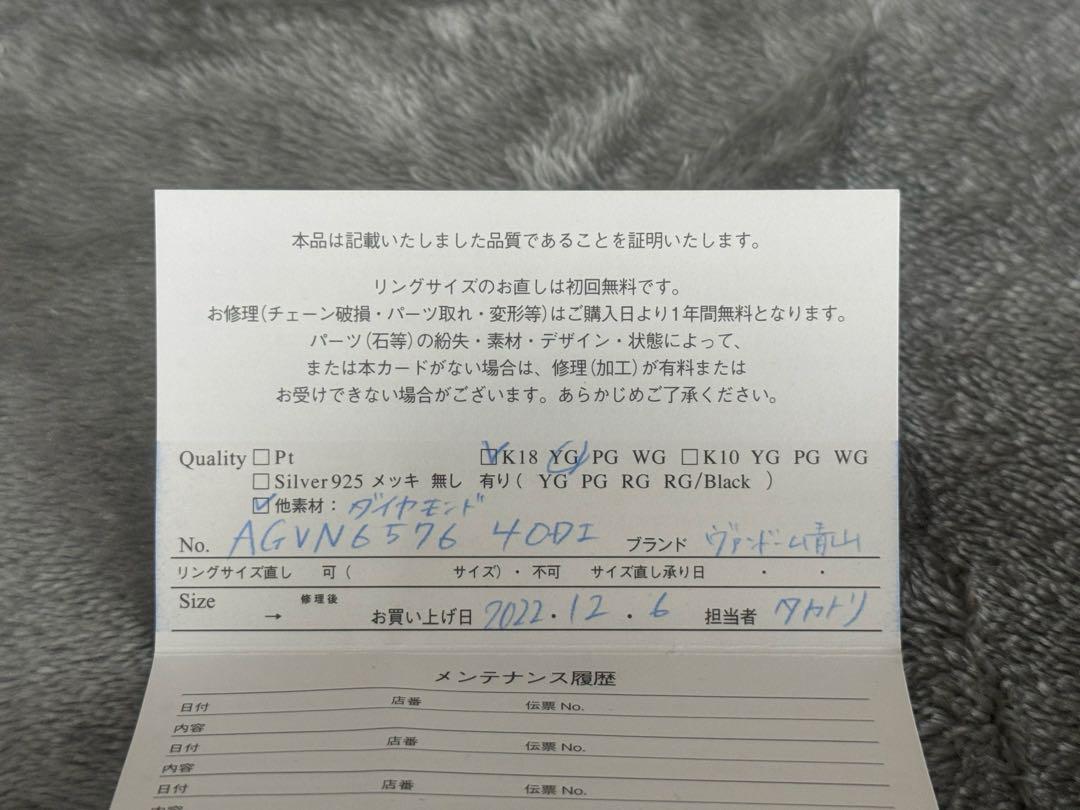 本品は記載いたしました品質であることを証明いたします。
リングサイズのお直しは初回無料です。
お修理(チェーン破損・パーツ取れ・変形等)はご購入日より1年間無料となります。
パーツ(石等)の紛失・素材・デザイン・状態によって、
または本カードがない場合は、修理(加工)が有料または
お受けできない場合がございます。あらかじめご了承ください。
Quality □Pt ☑K18 YG PG WG □K10 YG PG WG
□Silver925 メッキ 無し 有り( YG PG RG RG/Black )
☑他素材：ダイヤモンド
No. AGVN6576 40DI ブランド ヴァンドーム青山
リングサイズ直し 可( サイズ)・不可 サイズ直し承り日 ・ ・
Size → 修理後 お買い上げ日 2022・12・6 担当者 タカトリ
メンテナンス履歴
日付 店番 伝票 No.
内容
日付 店番 伝票 No.
内容
日付 店番 伝票 No.
内容